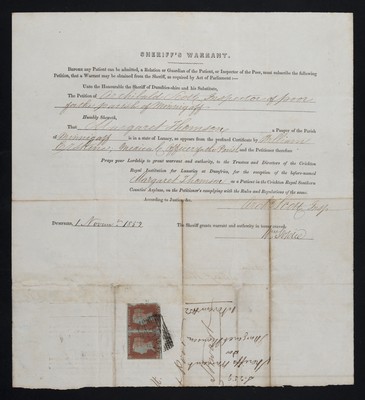 SHERIFF'S WARRANT.
BEFORE any Patient can be admitted, a Relation or Guardian of the Patient, or Inspector of the Poor, must subscribe the following
Petition, that a Warrant may be obtained from the Sheriff, as required by Act of Parliament :—
UNTO the Honourable the Sheriff of Dumfries-shire and his Substitute,
The Petition of Archibald Scott Inspector of poor
for the parish of
Humbly Sheweth,
That Margaret Thomson a Pauper of the Parish
of is in a state of Lunacy, as appears from the prefixed Certificate by William
and the Petitioner therefore
Prays your Lordship to grant warrant and authority, to the Trustees and Directors of the Crichton
Royal Institution for Lunatics at Dumfries, for the reception of the before-named
Margaret Thomson as a Patient in the Crichton Royal Southern
Counties' Asylum, on the Petitioner's complying with the Rules and Regulations of the same.
According to Justice &c.
Archd Scott, Insp.
DUMFRIES, 1 Novemr 1852 The Sheriff grants warrant and authority in terms craved.
Sheriffs Warrant
for
Margaret Thomson